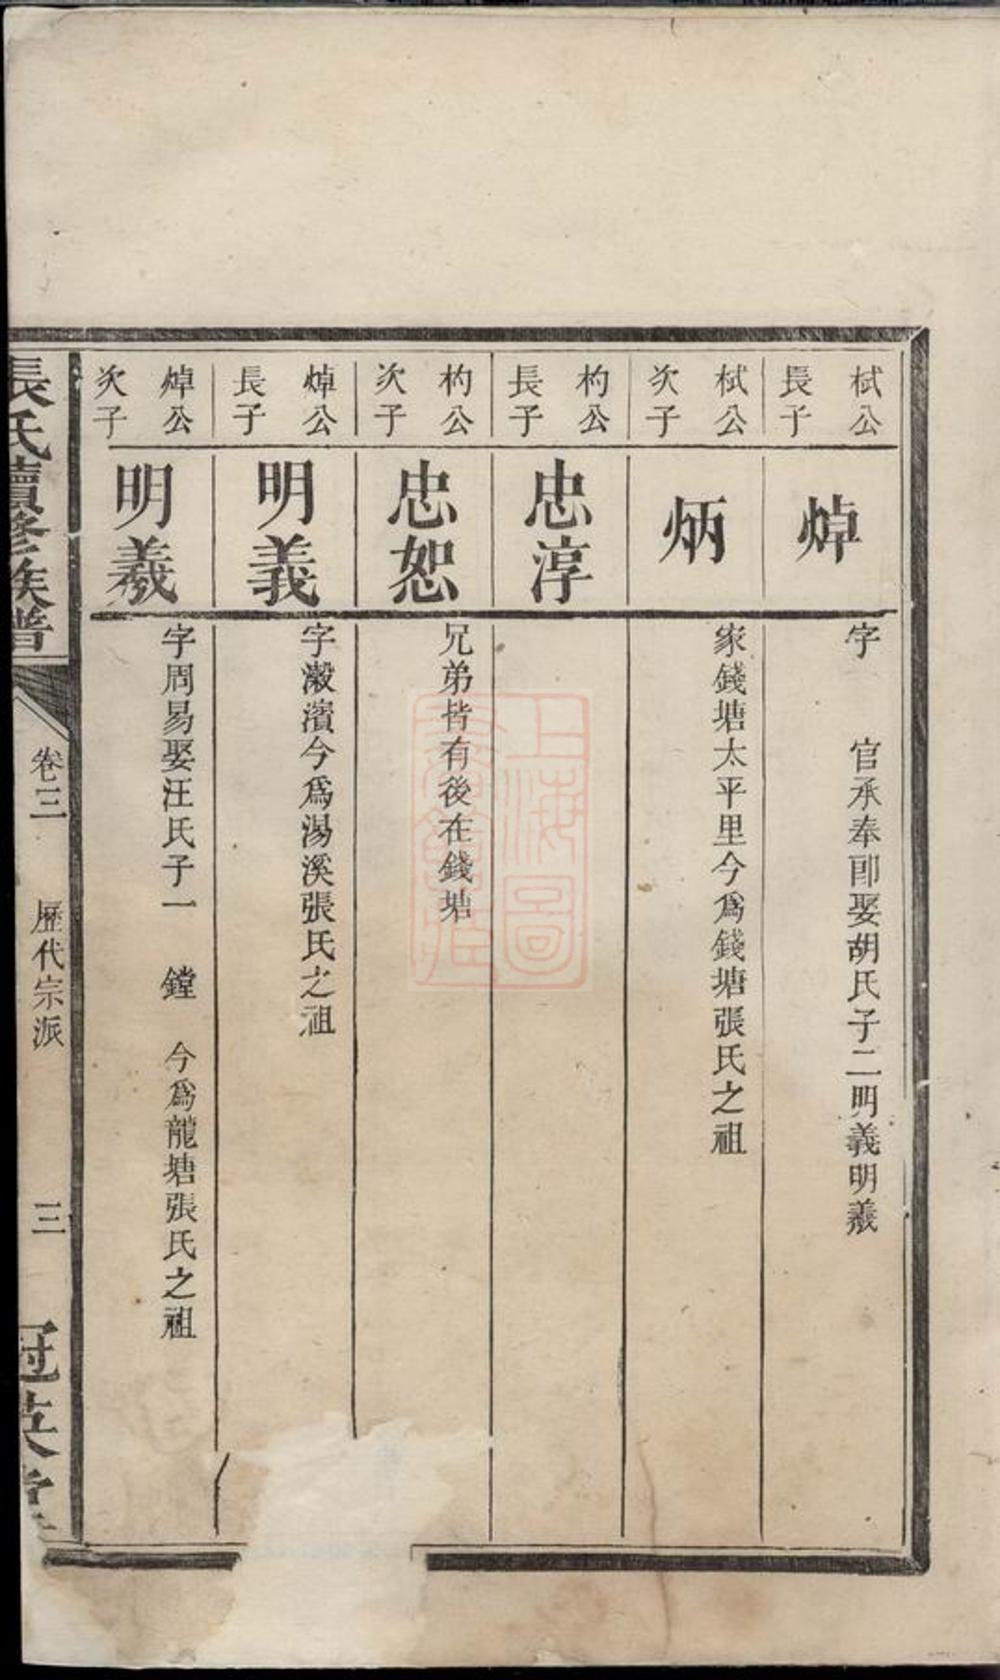 栻公長子
焯
字 官承奉郎娶胡氏子二明義明羲
栻公次子
炳
家錢塘太平里今爲錢塘張氏之祖
杓公長子
忠淳
杓公次子
忠恕
兄弟皆有後在錢塘
焯公長子
明義
字瀫濱今爲湯溪張氏之祖
焯公次子
明羲
字周易娶汪氏子一 鏜 今爲龍塘張氏之祖
張氏續修族譜
卷三 歷代宗派 三
冠英堂
上海圖書館藏